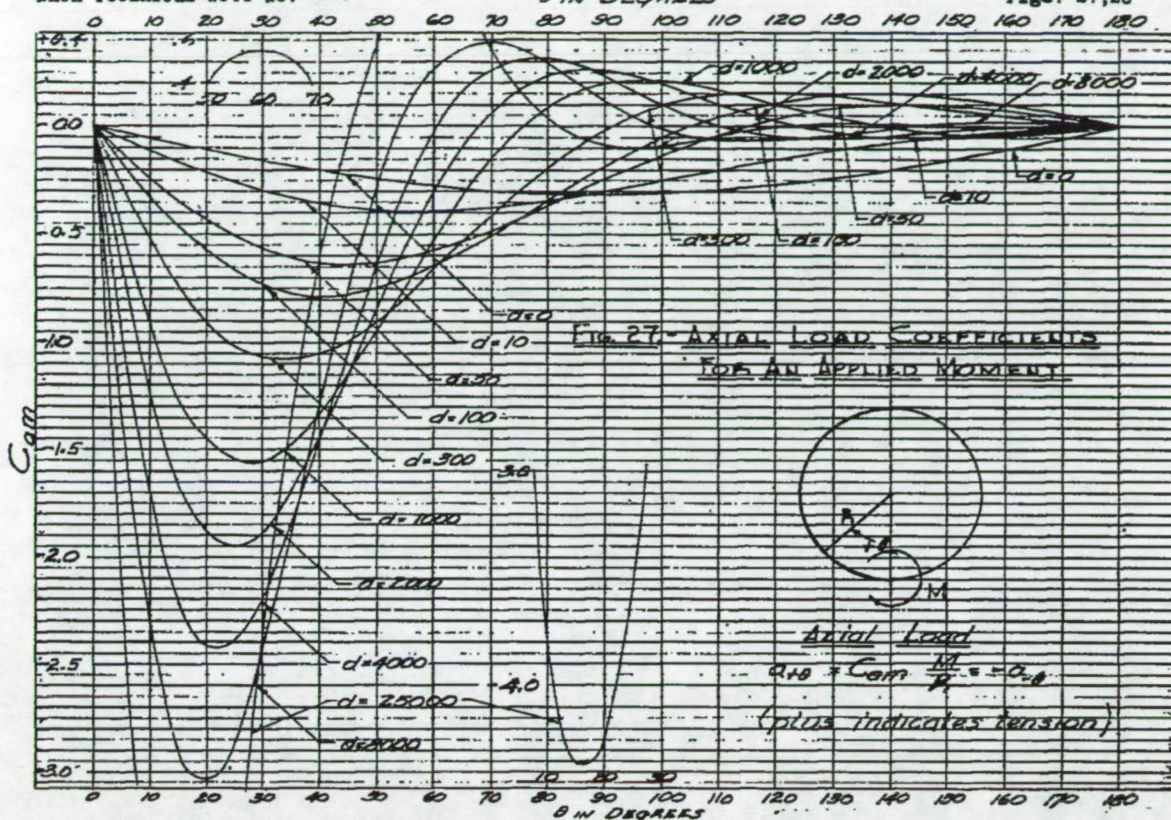 θ IN DEGREES
0 10 20 30 40 50 60 70 80 90 100 110 120 130 140 150 160 170 180
+0.4
0.0
-0.5
-1.0
-1.5
-2.0
-2.5
-3.0
Cam
50 60 70
d=1000
d=2000
d=4000
d=8000
d=0
d=10
d=50
d=100
d=300
d=0
d=10
d=50
d=100
d=300
d=1000
d=2000
d=4000
d=25000
d=8000
FIG. 27 - AXIAL LOAD COEFFICIENTS
FOR AN APPLIED MOMENT
-3.0
-4.0
10 20 30
R
+θ
M
Axial Load
a+θ = Cam M/R = -a-θ
(plus indicates tension)
0 10 20 30 40 50 60 70 80 90 100 110 120 130 140 150 160 170 180
θ IN DEGREES